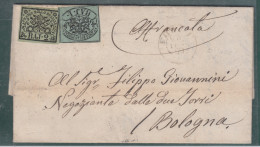 Affrancata
Al Sigr Filippo Giovannini
Negoziante Dalle due Torri
Bologna